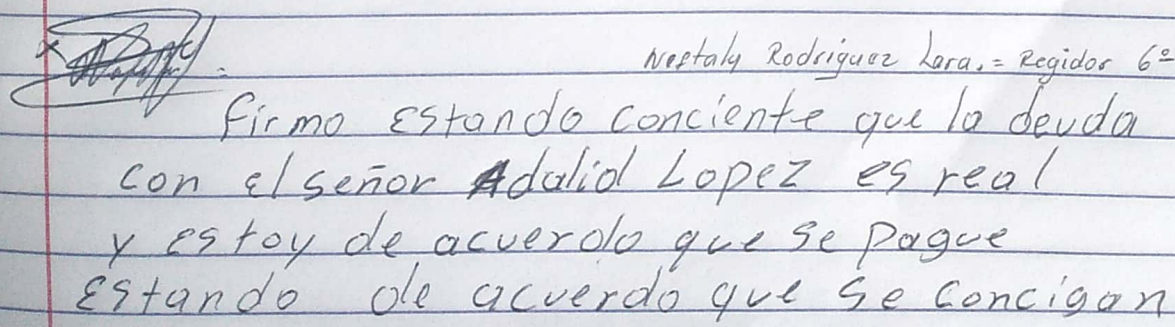 Neftaly Rodriguez Lara. = Regidor 6º
firmo Estando conciente que la deuda
con el señor Adalid Lopez es real
y estoy de acuerdo que se pague
Estando de acuerdo que se concigan